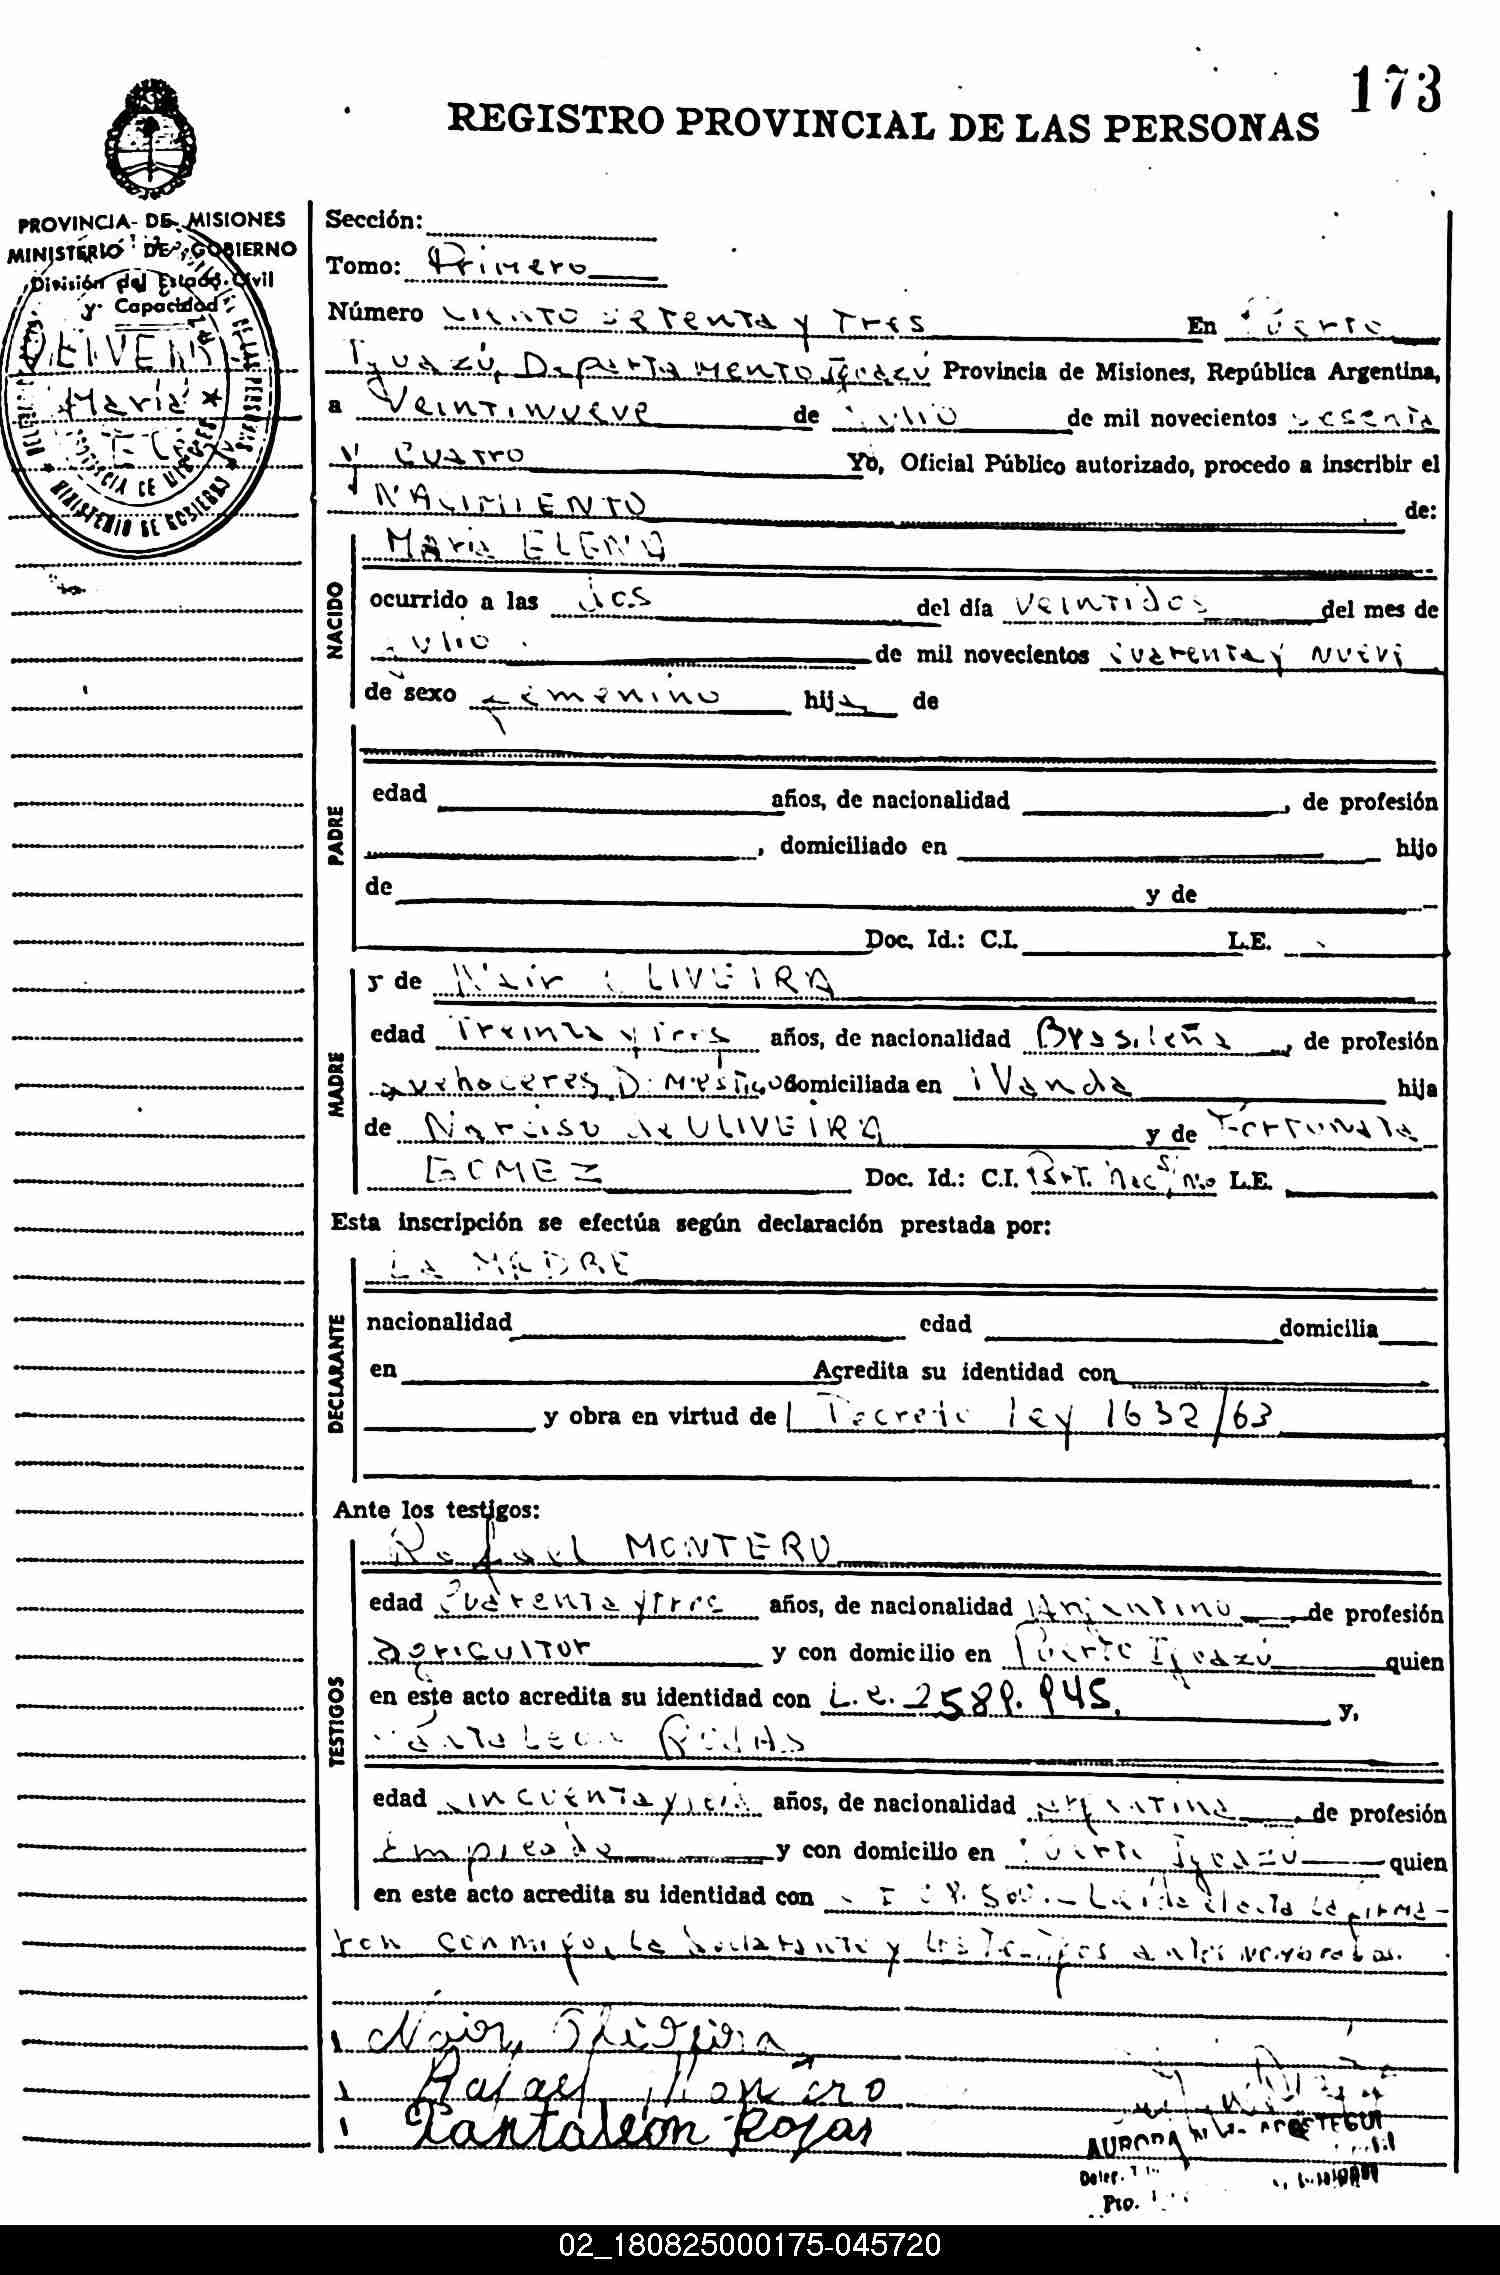 173
REGISTRO PROVINCIAL DE LAS PERSONAS
PROVINCIA DE MISIONES
MINISTERIO DE GOBIERNO
División del Estado Civil
y Capacidad
María
MINISTERIO DE GOBIERNO
Sección:
Tomo: Primero
Número Ciento Setenta y Tres En Puerto
Iguazú, Departamento Iguazú Provincia de Misiones, República Argentina,
a Veintinueve de Julio de mil novecientos sesenta
y Cuatro Yo, Oficial Público autorizado, procedo a inscribir el
NACIMIENTO de:
NACIDO
María ELENA
ocurrido a las dos del día Veintidos del mes de
Julio de mil novecientos Cuarenta y Nueve
de sexo femenino hija de
PADRE
edad años, de nacionalidad , de profesión
, domiciliado en hijo
de y de
Doc. Id.: C.I. L.E.
MADRE
y de Nair OLIVEIRA
edad Treinta y Tres años, de nacionalidad Brasileña, de profesión
quehaceres Domésticos domiciliada en Wanda hija
de Narciso de OLIVEIRA y de Fortunata
GOMEZ Doc. Id.: C.I. L.E.
Esta inscripción se efectúa según declaración prestada por:
DECLARANTE
La MADRE
nacionalidad edad domicilia
en Acredita su identidad con
y obra en virtud de Decreto ley 1632/63
Ante los testigos:
TESTIGOS
Rafael MONTERO
edad Cuarenta y tres años, de nacionalidad Argentino, de profesión
agricultor y con domicilio en Puerto Iguazú quien
en este acto acredita su identidad con L.e. 2589.945, y,
Pantaleon ROJAS
edad Cincuenta y seis años, de nacionalidad argentino, de profesión
Empleado y con domicilio en Puerto Iguazú quien
en este acto acredita su identidad con Leída el acta la firma-
ron conmigo, la declarante y los Testigos antes nombrados.
Nair Oliveira
Rafael Montero
Pantaleón Rojas
AURORA
Pto.
02_180825000175-045720